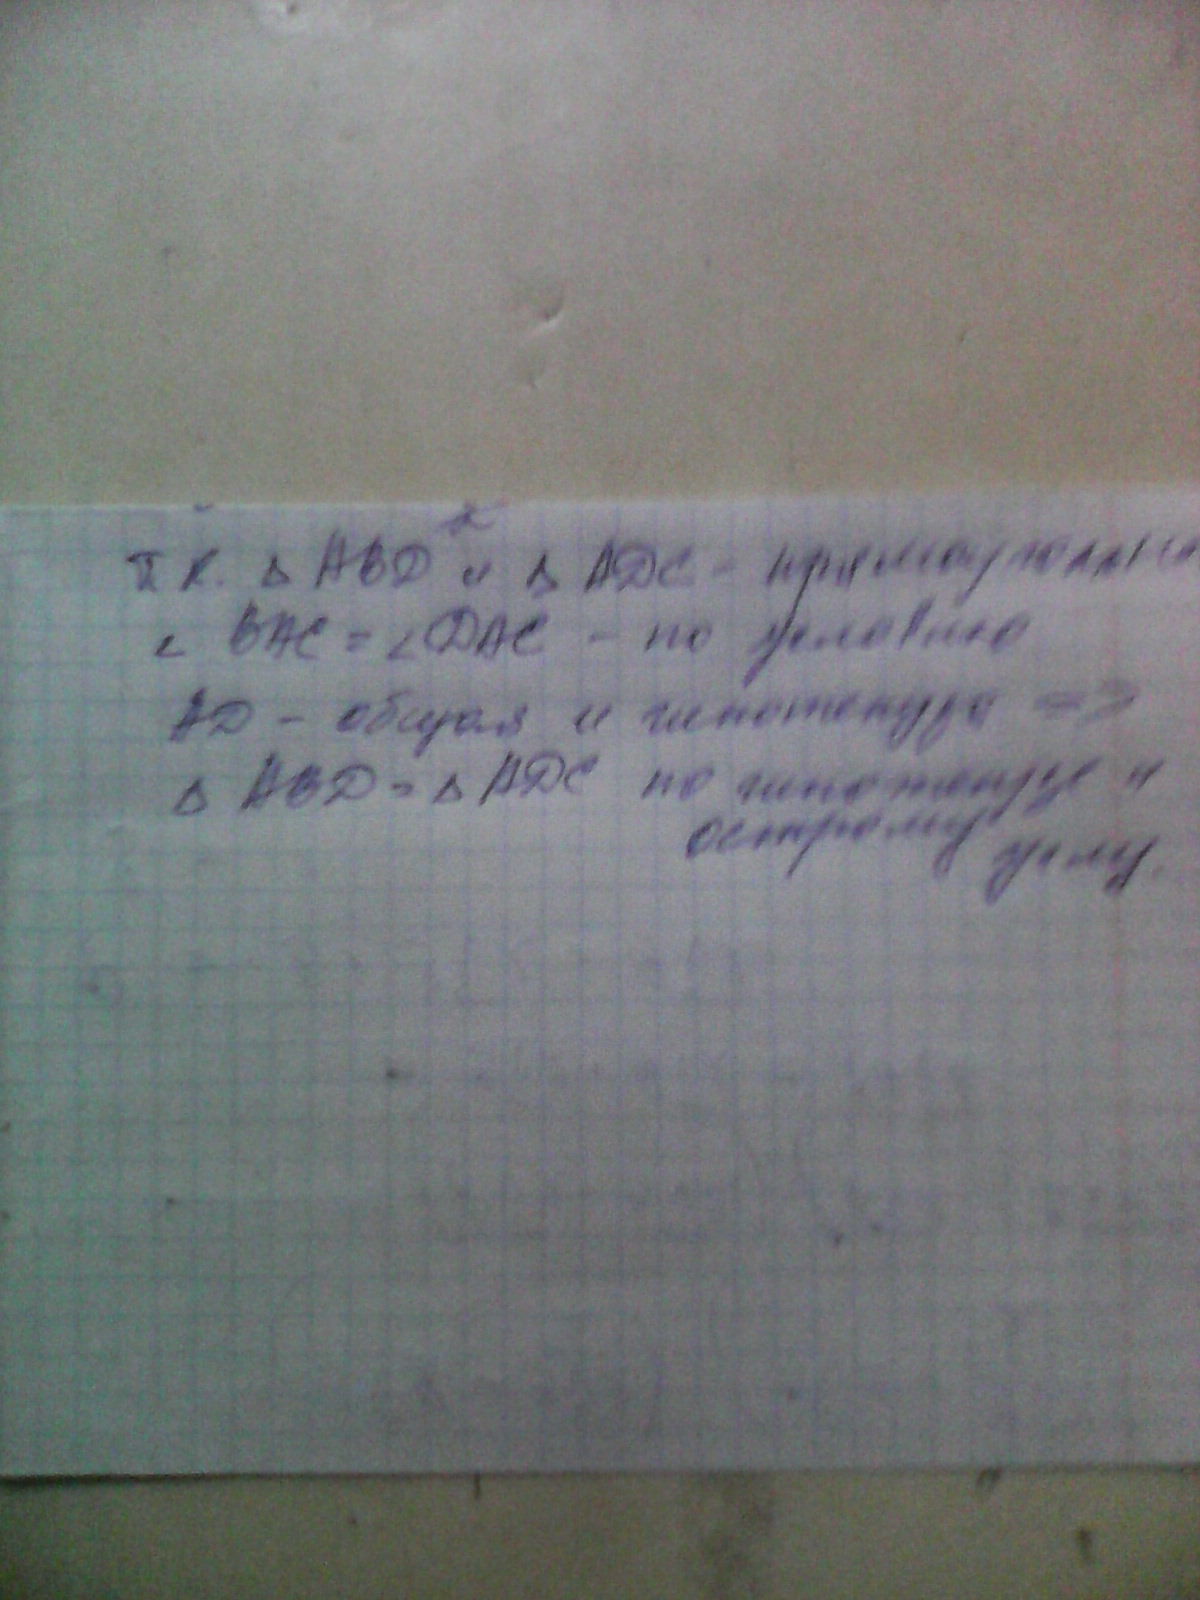 Т.к. △ ABD и △ ADC - прямоугольные
∠ BAC = ∠ DAC - по условию
AD - общая и гипотенуза =>
△ ABD = △ ADC по гипотенузе и
острому углу.